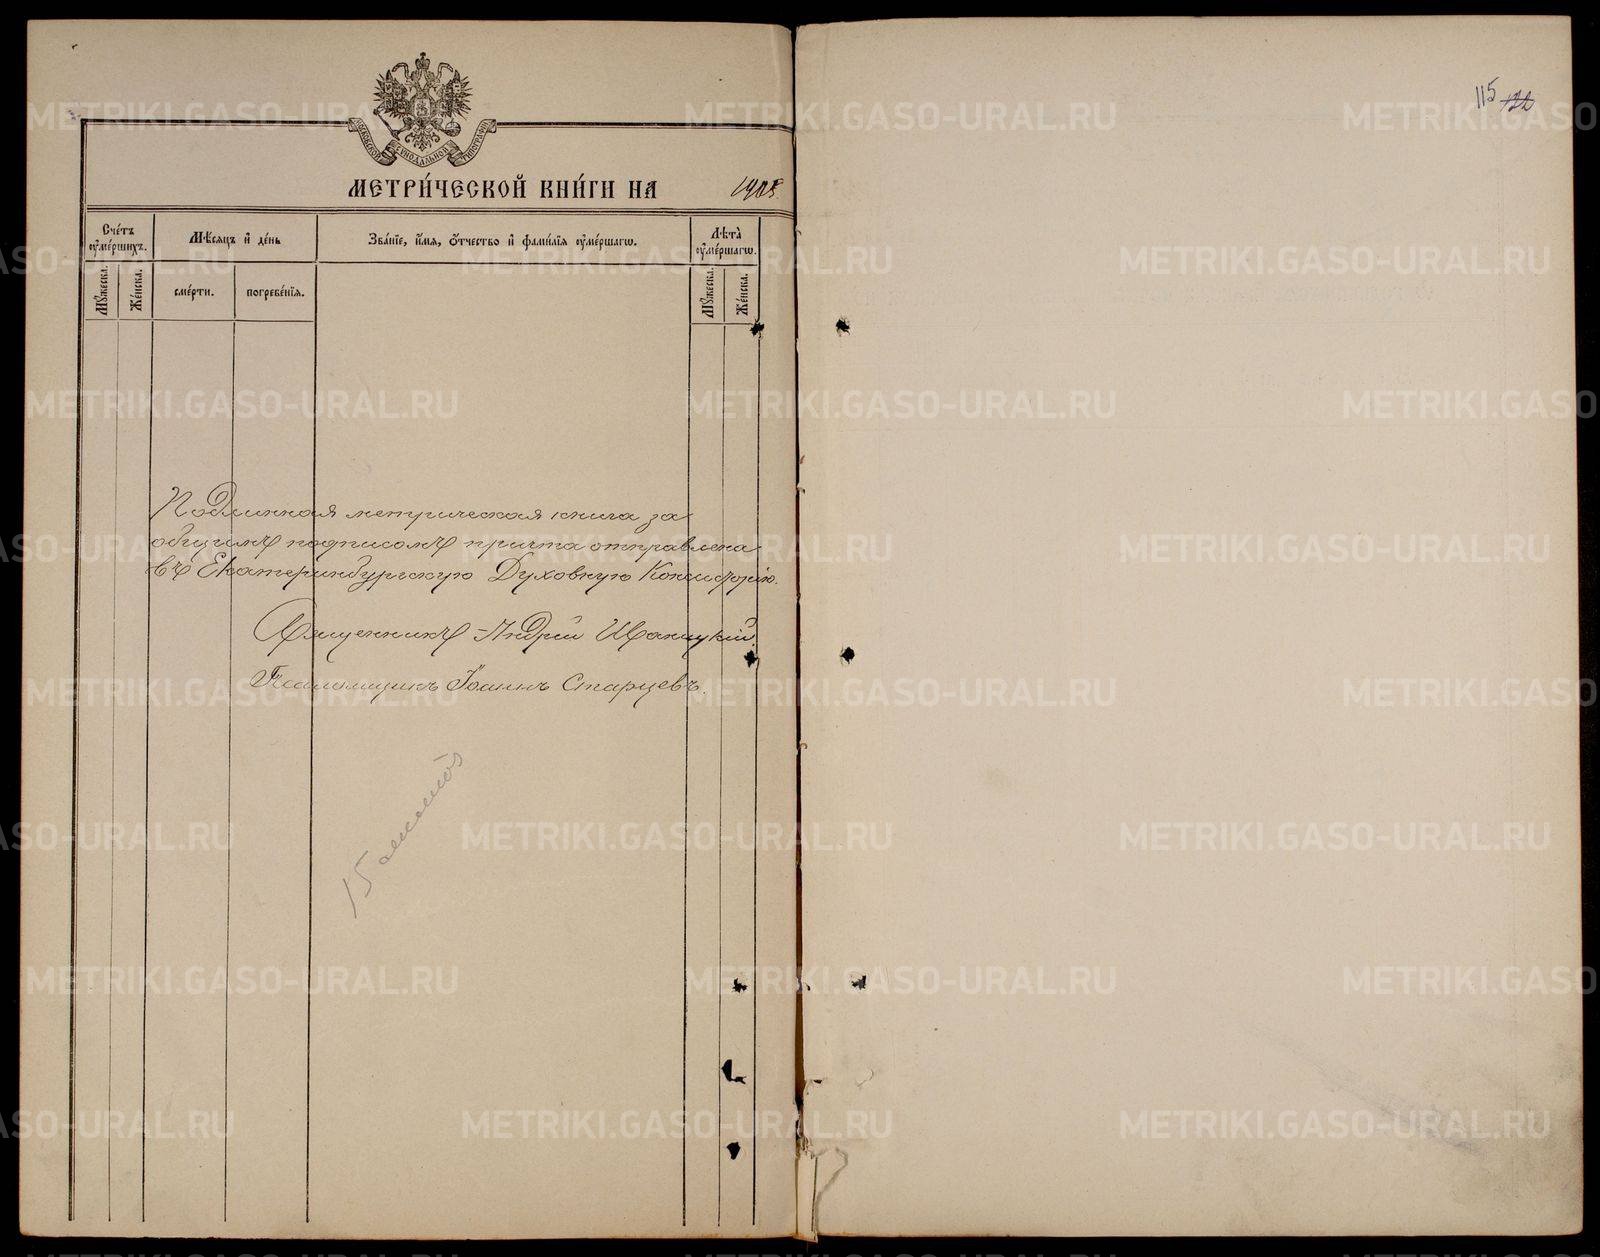 115 122
МОСКОВСКОЙ СѴНОДАЛЬНОЙ ТИПОГРАФІИ
МЕТРИ́ЧЕСКОЙ КНИ́ГИ НА 1905
Сче́тъ ᲂуме́ршихъ.
Мѣ́сяцъ и де́нь
Зва́ніе, и́мя, ѻ҆́тчество и фами́лія ᲂуме́ршагѡ.
Лѣ́та ᲂуме́ршагѡ.
Мꙋ́жеска. Же́нска.
сме́рти. погребе́нія.
Мꙋ́жеска. Же́нска.
Подлинная метрическая книга за
общимъ подписомъ причта отправлена
въ Екатеринбургскую Духовную Консисторію.
Священникъ Андрей Иваницкій.
Псаломщикъ Іоаннъ Старцевъ.
METRIKI.GASO-URAL.RU